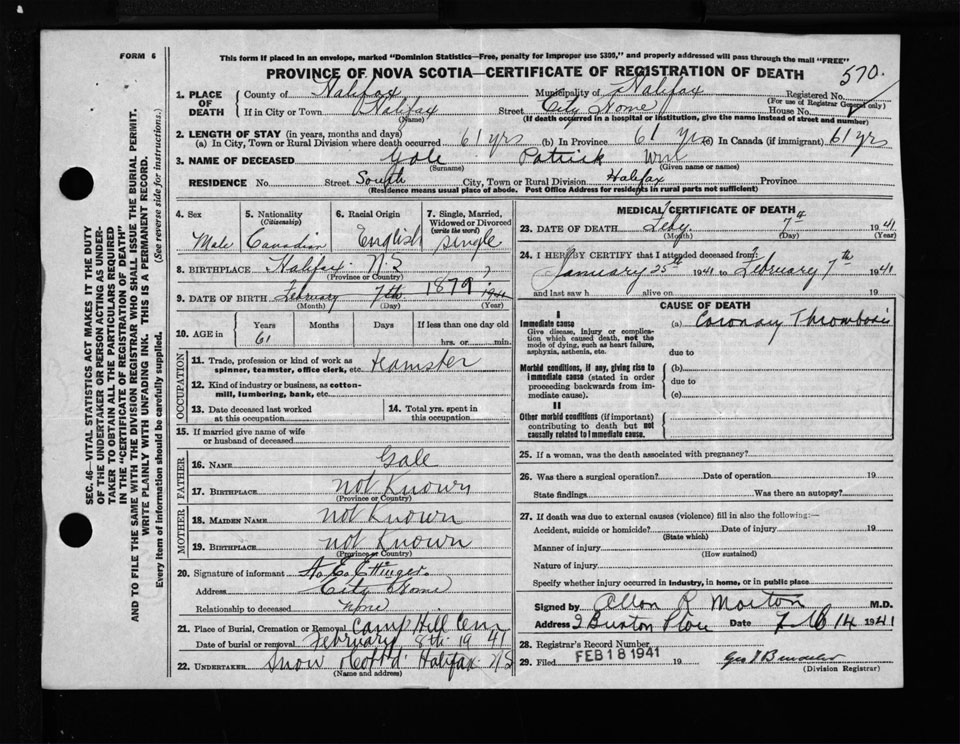 FORM 6
This form if placed in an envelope, marked "Dominion Statistics—Free, penalty for improper use $300," and properly addressed will pass through the mail "FREE"
PROVINCE OF NOVA SCOTIA—CERTIFICATE OF REGISTRATION OF DEATH
570.
1. PLACE OF DEATH
County of Halifax Municipality of Halifax Registered No.
(For use of Registrar General only)
If in City or Town Halifax Street City Home House No.
(Name) (If death occurred in a hospital or institution, give the name instead of street and number)
2. LENGTH OF STAY (in years, months and days)
(a) In City, Town or Rural Division where death occurred 61 yrs (b) In Province 61 yrs (c) In Canada (if immigrant) 61 yrs
3. NAME OF DECEASED Gale Patrick Wm
(Surname) (Given name or names)
RESIDENCE No. Street South City, Town or Rural Division Halifax Province
(Residence means usual place of abode. Post Office Address for residents in rural parts not sufficient)
4. Sex Male
5. Nationality (Citizenship) Canadian
6. Racial Origin English
7. Single, Married, Widowed or Divorced (write the word) single
8. BIRTHPLACE Halifax N.S
(Province or Country)
9. DATE OF BIRTH February 7th 1879 ? 1941
(Month) (Day) (Year)
10. AGE in Years Months Days If less than one day old
61 hrs. or min.
OCCUPATION
11. Trade, profession or kind of work as spinner, teamster, office clerk, etc. teamster
12. Kind of industry or business, as cotton-mill, lumbering, bank, etc.
13. Date deceased last worked at this occupation
14. Total yrs. spent in this occupation
15. If married give name of wife or husband of deceased
FATHER
16. NAME Gale
17. BIRTHPLACE not Known
(Province or Country)
MOTHER
18. MAIDEN NAME not Known
19. BIRTHPLACE not Known
(Province or Country)
20. Signature of informant Ettinger
Address City Home
Relationship to deceased none
21. Place of Burial, Cremation or Removal Camp Hill Cem
Date of burial or removal February 8th 19 41
22. UNDERTAKER Snow & Co Ltd. Halifax N.S
(Name and address)
MEDICAL CERTIFICATE OF DEATH
23. DATE OF DEATH Feby. 7th 1941
(Month) (Day) (Year)
24. I HEREBY CERTIFY that I attended deceased from:
January 25th 1941 to February 7th 1941
and last saw h alive on 19
CAUSE OF DEATH
I
Immediate cause (a) Coronary Thrombosis
Give disease, injury or complication which caused death, not the mode of dying, such as heart failure, asphyxia, asthenia, etc.
due to
Morbid conditions, if any, giving rise to immediate cause (stated in order proceeding backwards from immediate cause).
(b)
due to
(c)
II
Other morbid conditions (if important) contributing to death but not causally related to immediate cause.
25. If a woman, was the death associated with pregnancy?
26. Was there a surgical operation? Date of operation 19
State findings Was there an autopsy?
27. If death was due to external causes (violence) fill in also the following:—
Accident, suicide or homicide? Date of injury 19
(State which)
Manner of injury
(How sustained)
Nature of injury
Specify whether injury occurred in industry, in home, or in public place
Signed by Morton M.D.
Address Date Feb 14 1941
28. Registrar's Record Number
29. Filed FEB 18 1941 19
(Division Registrar)
SEC. 46—VITAL STATISTICS ACT MAKES IT THE DUTY
OF THE UNDERTAKER OR PERSON ACTING AS UNDER-
TAKER TO OBTAIN ALL THE PARTICULARS REQUIRED
IN THE "CERTIFICATE OF REGISTRATION OF DEATH"
AND TO FILE THE SAME WITH THE DIVISION REGISTRAR WHO SHALL ISSUE THE BURIAL PERMIT.
WRITE PLAINLY WITH UNFADING INK. THIS IS A PERMANENT RECORD.
Every item of information should be carefully supplied. (See reverse side for instructions.)